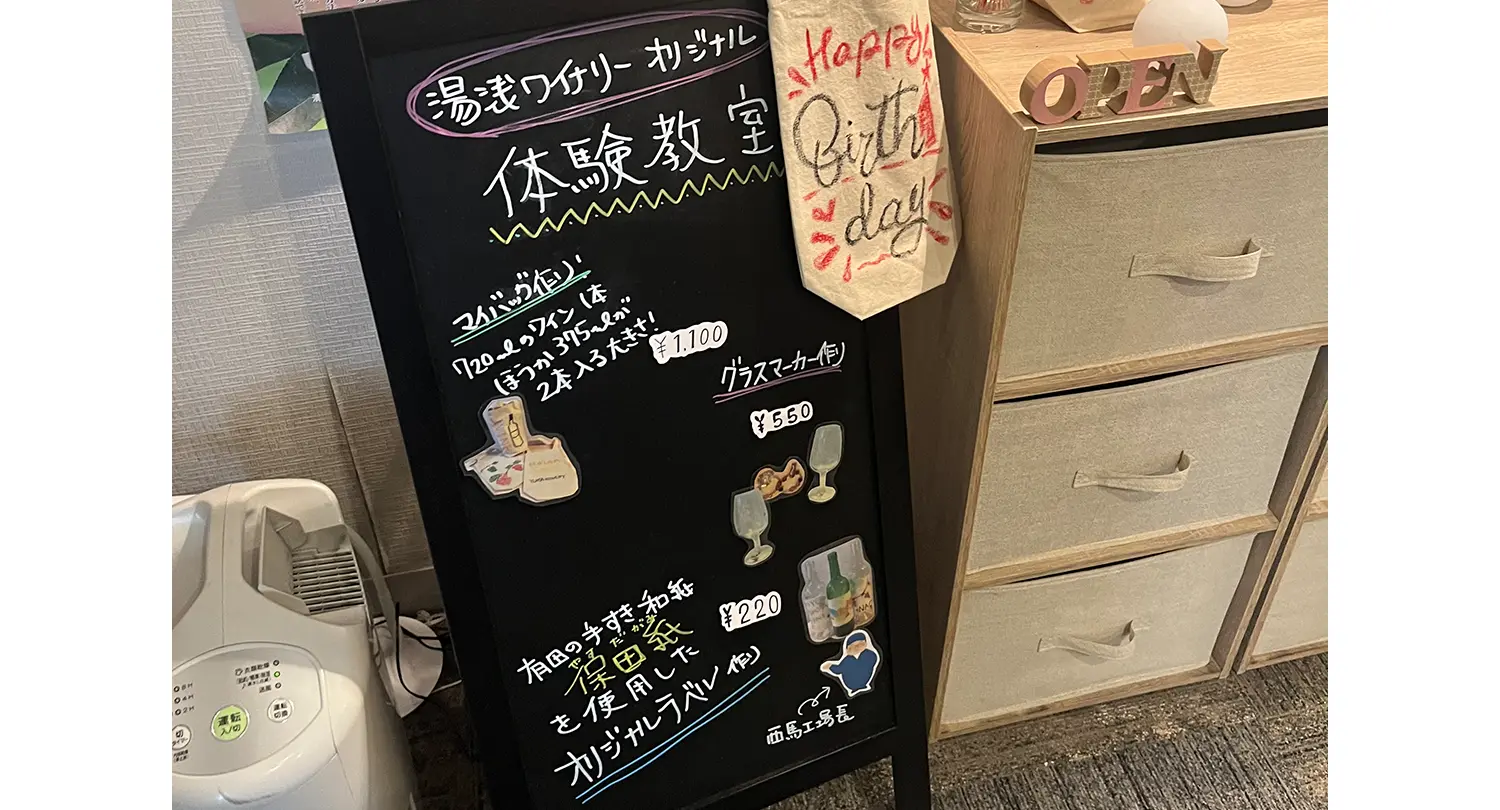 湯浅ワイナリー オリジナル
体験教室
Happy
Birth
day
OPEN
マイバッグ作り!
720mlのワイン1本
ほうか375mlが
2本入る大きさ!
¥1,100
グラスマーカー作り
¥550
有田の手すき和紙
やすだがみ
保田紙
を使用した
オリジナルラベル作り
¥220
酉馬工場長
衣類乾燥
送風
8H
4H
2H
運転
入/切
運転
切換
切
タイマー